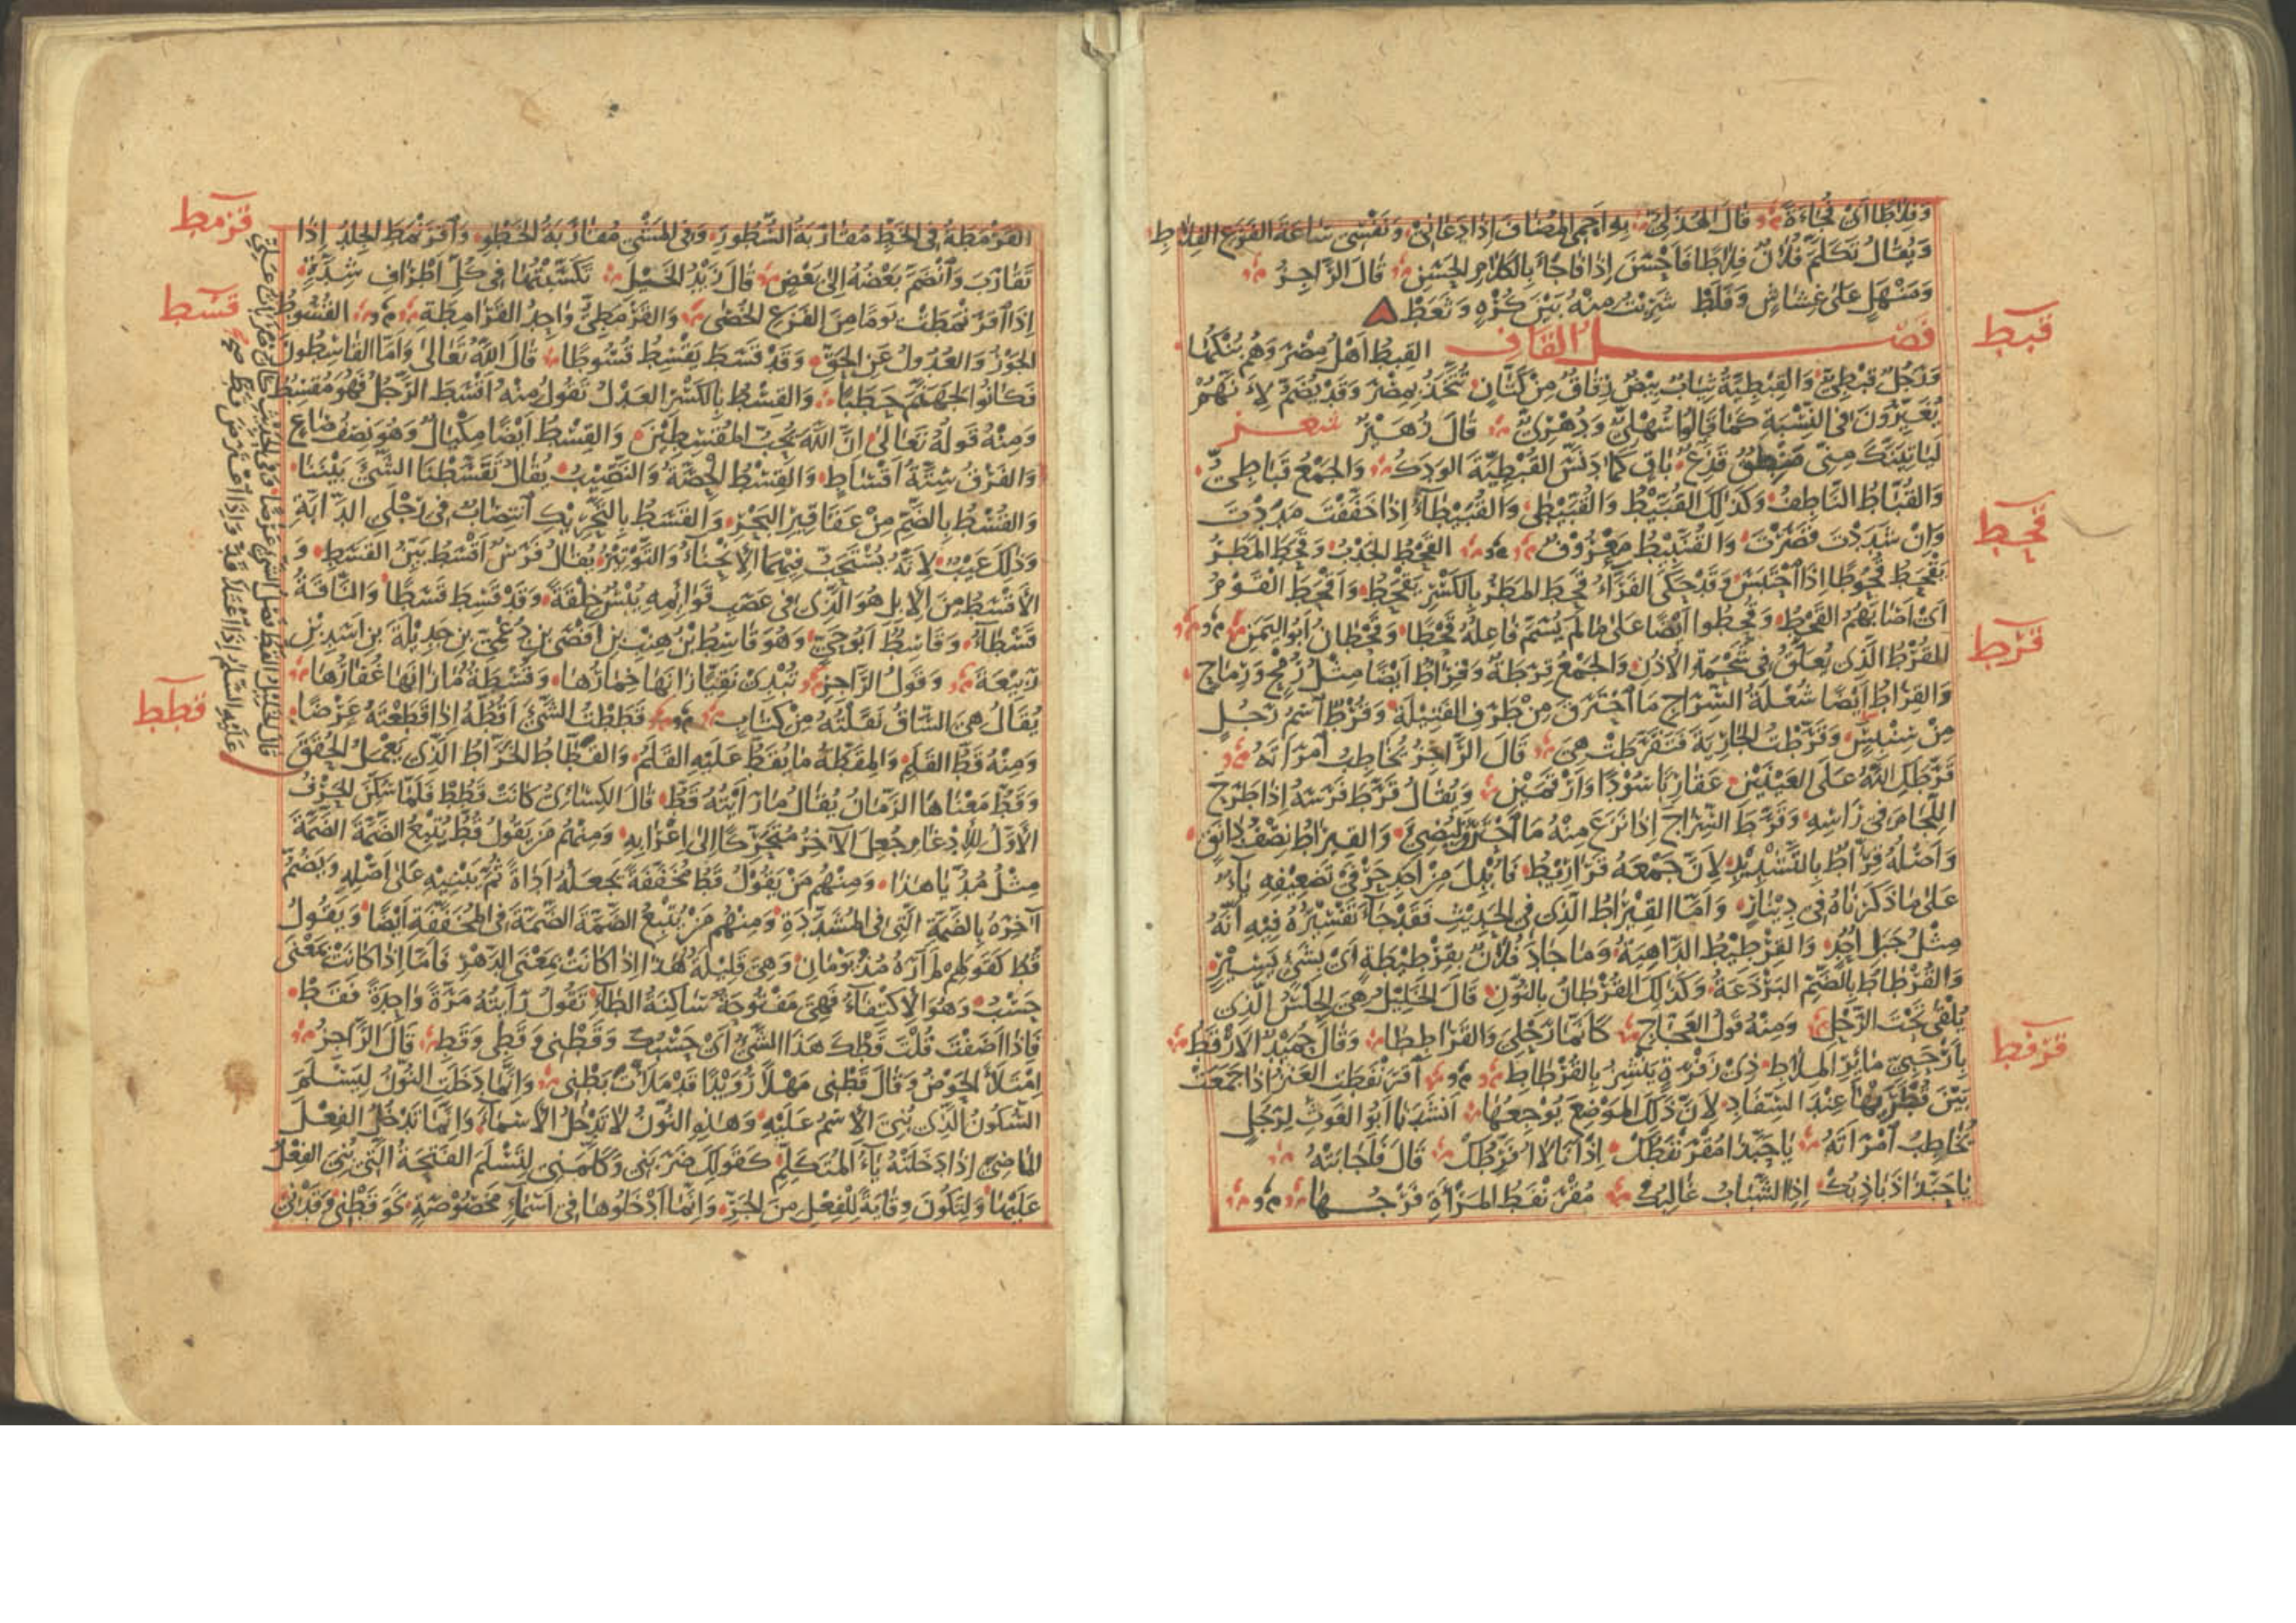 وَفِلَاطًا اَىْ فُجَاءَةً قَالَ الهُذَلِىُّ بِهِ اَحْمِى المُضَافَ اِذَا دَعَانِى وَنَفْسِى سَاعَةَ الفَزَعِ الفِلَاطِ
وَيُقَالُ تَكَلَّمَ فُلَانٌ فِلَاطًا فَاَحْسَنَ اِذَا فَاجَأَ بِالكَلَامِ الحَسَنِ قَالَ الرَّاجِزُ
وَمَنْهَلٍ عَلَى غِشَاشٍ وَفَلَطْ شَرِبْتُ مِنْهُ بَيْنَ كُرْهٍ وَنَعَطْ
فَصْلُ القَافِ القِبْطُ اَهْلُ مِصْرَ وَهُمْ بُنْكُهَا
قبط
وَرَجُلٌ قِبْطِىٌّ وَالقِبْطِيَّةُ ثِيَابٌ بِيضٌ رِقَاقٌ مِنْ كَتَّانٍ تُتَّخَذُ بِمِصْرَ وَقَدْ يُضَمُّ لِاَنَّهُمْ
يُغَيِّرُونَ فِى النِّسْبَةِ كَمَا قَالُوا سُهْلِىٌّ وَدُهْرِىٌّ قَالَ زُهَيْرٌ شعر
لَيَأْتِيَنَّكَ مِنِّى مَنْطِقٌ قَذِعٌ بَاقٍ كَمَا دَنَّسَ القُبْطِيَّةَ الوَدَكُ وَالجَمْعُ قَبَاطِىُّ
وَالقُبَّاطُ النَّاطِفُ وَكَذٰلِكَ القُبَّيْطُ وَالقُبَّيْطَى وَالقُبَيْطَاءُ اِذَا خَفَّفْتَ مَدَدْتَ
وَاِنْ شَدَّدْتَ قَصَرْتَ وَالقُنَّبِيطُ مَعْرُوفٌ القَحْطُ الجَدْبُ وَقَحَطَ المَطَرُ
قحط
يَقْحَطُ قُحُوطًا اِذَا احْتَبَسَ وَقَدْ حَكَى الفَرَّاءُ قَحِطَ المَطَرُ بِالكَسْرِ يَقْحَطُ وَاَقْحَطَ القَوْمُ
اَىْ اَصَابَهُمُ القَحْطُ وَقُحِطُوا اَيْضًا عَلَى مَا لَمْ يُسَمَّ فَاعِلُهُ قَحْطًا وَقَحْطَانُ اَبُو اليَمَنِ
القُرْطُ الَّذِى يُعَلَّقُ فِى شَحْمَةِ الاُذُنِ وَالجَمْعُ قِرَطَةٌ وَقِرَاطٌ اَيْضًا مِثْلُ رُمْحٍ وَرِمَاحٍ
قرط
وَالقِرَاطُ اَيْضًا شُعْلَةُ السِّرَاجِ مَا احْتَرَقَ مِنْ طَرَفِ الفَتِيلَةِ وَقُرْطٌ اسْمُ رَجُلٍ
مِنْ سِنْبِسٍ وَقَرَّطْتُ الجَارِيَةَ فَتَقَرَّطَتْ هِىَ قَالَ الرَّاجِزُ يُخَاطِبُ امْرَاَتَهُ
قَرَّطَكِ اللّٰهُ عَلَى العَيْنَيْنِ عَقَارِبًا سُودًا وَاَرْقَمَيْنِ وَيُقَالُ قَرَّطَ فَرَسَهُ اِذَا طَرَحَ
اللِّجَامَ فِى رَاسِهِ وَقَرَّطَ السِّرَاجَ اِذَا نَزَعَ مِنْهُ مَا احْتَرَقَ لِيُضِىءَ وَالقِيرَاطُ نِصْفُ دَانَقٍ
وَاَصْلُهُ قِرَّاطٌ بِالتَّشْدِيدِ لِاَنَّ جَمْعَهُ قَرَارِيطُ فَاُبْدِلَ مِنْ اَحَدِ حَرْفَىْ تَضْعِيفِهِ يَاءٌ
عَلَى مَا ذَكَرْنَاهُ فِى دِينَارٍ وَاَمَّا القِيْرَاطُ الَّذِى فِى الحَدِيْثِ فَقَدْ جَاءَ تَفْسِيْرُهُ فِيهِ اَنَّهُ
مِثْلُ جَبَلِ اُحُدٍ وَالقِرْطِيْطُ الدَّاهِيَةُ وَمَا جَادَ فُلَانٌ بِقِرْطِيْطَةٍ اَىْ بِشَىْءٍ يَسِيْرٍ
وَالقُرْطَاطُ بِالضَّمِّ البَرْذَعَةُ وَكَذٰلِكَ القُرْطَانُ بِالنُّونِ قَالَ الخَلِيْلُ هِىَ الحِلْسُ الَّذِى
يُلْقَى تَحْتَ الرَّحْلِ وَمِنْهُ قَوْلُ العَجَّاجِ كَاَنَّمَا رَحْلِىَ وَالقَرَاطِطَا وَقَالَ حُمَيْدٌ الاَرْقَطُ
بِاَرْحَبِىٍّ مَائِرِ المِلَاطِ ذِى زَفْرَةٍ يَنْشِرُ بِالقُرْطَاطِ اقْرَنْفَطَتِ العَنْزُ اِذَا جَمَعَتْ
قرفط
بَيْنَ قُطْرَيْهَا عِنْدَ السِّفَادِ لِاَنَّ ذٰلِكَ المَوْضِعَ يُوْجِعُهَا اَنْشَدَنَا اَبُو الغَوْثِ لِرَجُلٍ
يُخَاطِبُ امْرَاَتَهُ يَا حَبَّذَا مُقْرَنْفَطُكْ اِذْ اَنَا لَا اُفَرِّطُكْ قَالَ فَاَجَابَتْهُ
يَا حَبَّذَا ذَبَاذِبُكْ اِذِ الشَّبَابُ غَالِبُكْ مُقْرَنْفَطُ المَرْاَةِ فَرْجُهَا
القَرْمَطَةُ فِى الخَطِّ مُقَارَبَةُ السُّطُورِ وَفِى المَشْىِ مُقَارَبَةُ الخَطْوِ وَاقْرَنْمَطَ الجِلْدُ اِذَا
قرمط
تَقَارَبَ وَانْضَمَّ بَعْضُهُ اِلَى بَعْضٍ قَالَ زَيْدُ الخَيْلِ تَكَسَّبْتُهَا فِى كُلِّ اَطْرَافِ شِدَّةٍ
اِذَا اقْرَنْمَطَتْ يَوْمًا مِنَ الفَزَعِ الخُصَى وَالقَرْمَطِىُّ وَاحِدُ القَرَامِطَةِ القُسُوطُ
قسط
الجَوْرُ وَالعُدُولُ عَنِ الحَقِّ وَقَدْ قَسَطَ يَقْسِطُ قُسُوطًا قَالَ اللّٰهُ تَعَالَى وَاَمَّا القَاسِطُونَ
فَكَانُوا لِجَهَنَّمَ حَطَبًا وَالقِسْطُ بِالكَسْرِ العَدْلُ تَقُولُ مِنْهُ اَقْسَطَ الرَّجُلُ فَهُوَ مُقْسِطٌ
وَمِنْهُ قَوْلُهُ تَعَالَى اِنَّ اللّٰهَ يُحِبُّ المُقْسِطِيْنَ وَالقِسْطُ اَيْضًا مِكْيَالٌ وَهُوَ نِصْفُ صَاعٍ
وَالفَرْقُ سِتَّةُ اَقْسَاطٍ وَالقِسْطُ الحِصَّةُ وَالنَّصِيْبُ يُقَالُ تَقَسَّطْنَا الشَّىْءَ بَيْنَنَا
وَالقُسْطُ بِالضَّمِّ مِنْ عَقَاقِيْرِ البَحْرِ وَالقَسَطُ بِالتَّحْرِيْكِ انْتِصَابٌ فِى رِجْلَىِ الدَّابَّةِ
وَذٰلِكَ عَيْبٌ لِاَنَّهُ يُسْتَحَبُّ فِيهِمَا الاِنْحِنَاءُ وَالتَّوْتِيْرُ يُقَالُ فَرَسٌ اَقْسَطُ بَيِّنُ القَسَطِ وَ
الاَقْسَطُ مِنَ الاِبِلِ هُوَ الَّذِى فِى عَصَبِ قَوَائِمِهِ يُبْسٌ خِلْقَةً وَقَدْ قَسِطَ قَسَطًا وَالنَّاقَةُ
قَسْطَاءُ وَقَاسِطٌ اَبُو حَىٍّ وَهُوَ قَاسِطُ بْنُ هِنْبِ بْنِ اَفْصَى بْنِ دُعْمِىِّ بْنِ جَدِيْلَةَ بْنِ اَسَدِ بْنِ
رَبِيْعَةَ وَقَوْلُ الرَّاجِزِ تُبْدِى نَقِيًّا زَانَهَا خِمَارُهَا وَقُسْطَةً مَا زَانَهَا غُفَارُهَا
يُقَالُ هِىَ السَّاقُ نَقَلْتُهُ مِنْ كِتَابٍ قَطَطْتُ الشَّىْءَ اَقُطُّهُ اِذَا قَطَعْتَهُ عَرْضًا
قطط
وَمِنْهُ قَطُّ القَلَمِ وَالمِقَطَّةُ مَا يُقَطُّ عَلَيْهِ القَلَمُ وَالقَطَّاطُ الخَرَّاطُ الَّذِى يَعْمَلُ الحُقَقَ
وَقَطُّ مَعْنَاهَا الزَّمَانُ يُقَالُ مَا رَاَيْتُهُ قَطُّ قَالَ الكِسَائِىُّ كَانَتْ قَطُطُ فَلَمَّا سُكِّنَ الحَرْفُ
الاَوَّلُ لِلاِدْغَامِ جُعِلَ الآخِرُ مُتَحَرِّكًا اِلَى اِعْرَابِهِ وَمِنْهُمْ مَنْ يَقُولُ قُطُّ يُتْبِعُ الضَّمَّةَ الضَّمَّةَ
مِثْلُ مُدُّ يَا هٰذَا وَمِنْهُمْ مَنْ يَقُوْلُ قَطُ مُخَفَّفَةً يَجْعَلُهُ اَدَاةً ثُمَّ يَبْنِيْهِ عَلَى اَصْلِهِ وَيَضُمُّ
آخِرَهُ بِالضَّمَّةِ الَّتِى فِى المُشَدَّدَةِ وَمِنْهُمْ مَنْ يُتْبِعُ الضَّمَّةَ الضَّمَّةَ فِى المُخَفَّفَةِ اَيْضًا وَيَقُولُ
قُطُ كَقَوْلِهِمْ لَمْ اَرَهُ مُذُ يَوْمَانِ وَهِىَ قَلِيْلَةٌ هٰذَا اِذَا كَانَتْ بِمَعْنَى الدَّهْرِ فَاَمَّا اِذَا كَانَتْ بِمَعْنَى
حَسْبُ وَهُوَ الاِكْتِفَاءُ فَهِىَ مَفْتُوحَةٌ سَاكِنَةُ الطَّاءِ تَقُولُ رَاَيْتُهُ مَرَّةً وَاحِدَةً فَقَطْ
فَاِذَا اَضَفْتَ قُلْتَ قَطْكَ هٰذَا الشَّىْءُ اَىْ حَسْبُكَ وَقَطْنِى وَقَطِى وَقَطِ قَالَ الرَّاجِزُ
امْتَلَأَ الحَوْضُ وَقَالَ قَطْنِى مَهْلًا رُوَيْدًا قَدْ مَلَأْتَ بَطْنِى وَاِنَّمَا دَخَلَتِ النُّوْنُ لِيَسْلَمَ
السُّكُونُ الَّذِى بُنِىَ الاِسْمُ عَلَيْهِ وَهٰذِهِ النُّوْنُ لَا تَدْخُلُ الاَسْمَاءَ وَاِنَّمَا تَدْخُلُ الفِعْلَ
المَاضِىَ اِذَا دَخَلَتْهُ يَاءُ المُتَكَلِّمِ كَقَوْلِكَ ضَرَبَنِى وَكَلَّمَنِى لِتَسْلَمَ الفَتْحَةُ الَّتِى بُنِىَ الفِعْلُ
عَلَيْهَا وَلِتَكُونَ وِقَايَةً لِلْفِعْلِ مِنَ الجَرِّ وَاِنَّمَا اَدْخَلُوهَا فِى اَسْمَاءٍ مَخْصُوْصَةٍ نَحْوَ قَطْنِى وَقَدْنِى
قَالَ الخَلِيْلُ القَطُّ فَصْلُ الشَّىْءِ عَرْضًا وَفِى الحَدِيْثِ كَانَ عَلِىٌّ
عَلَيْهِ السَّلَامُ اِذَا اعْتَلَا قَدَّ وَاِذَا اعْتَرَضَ قَطَّ صح